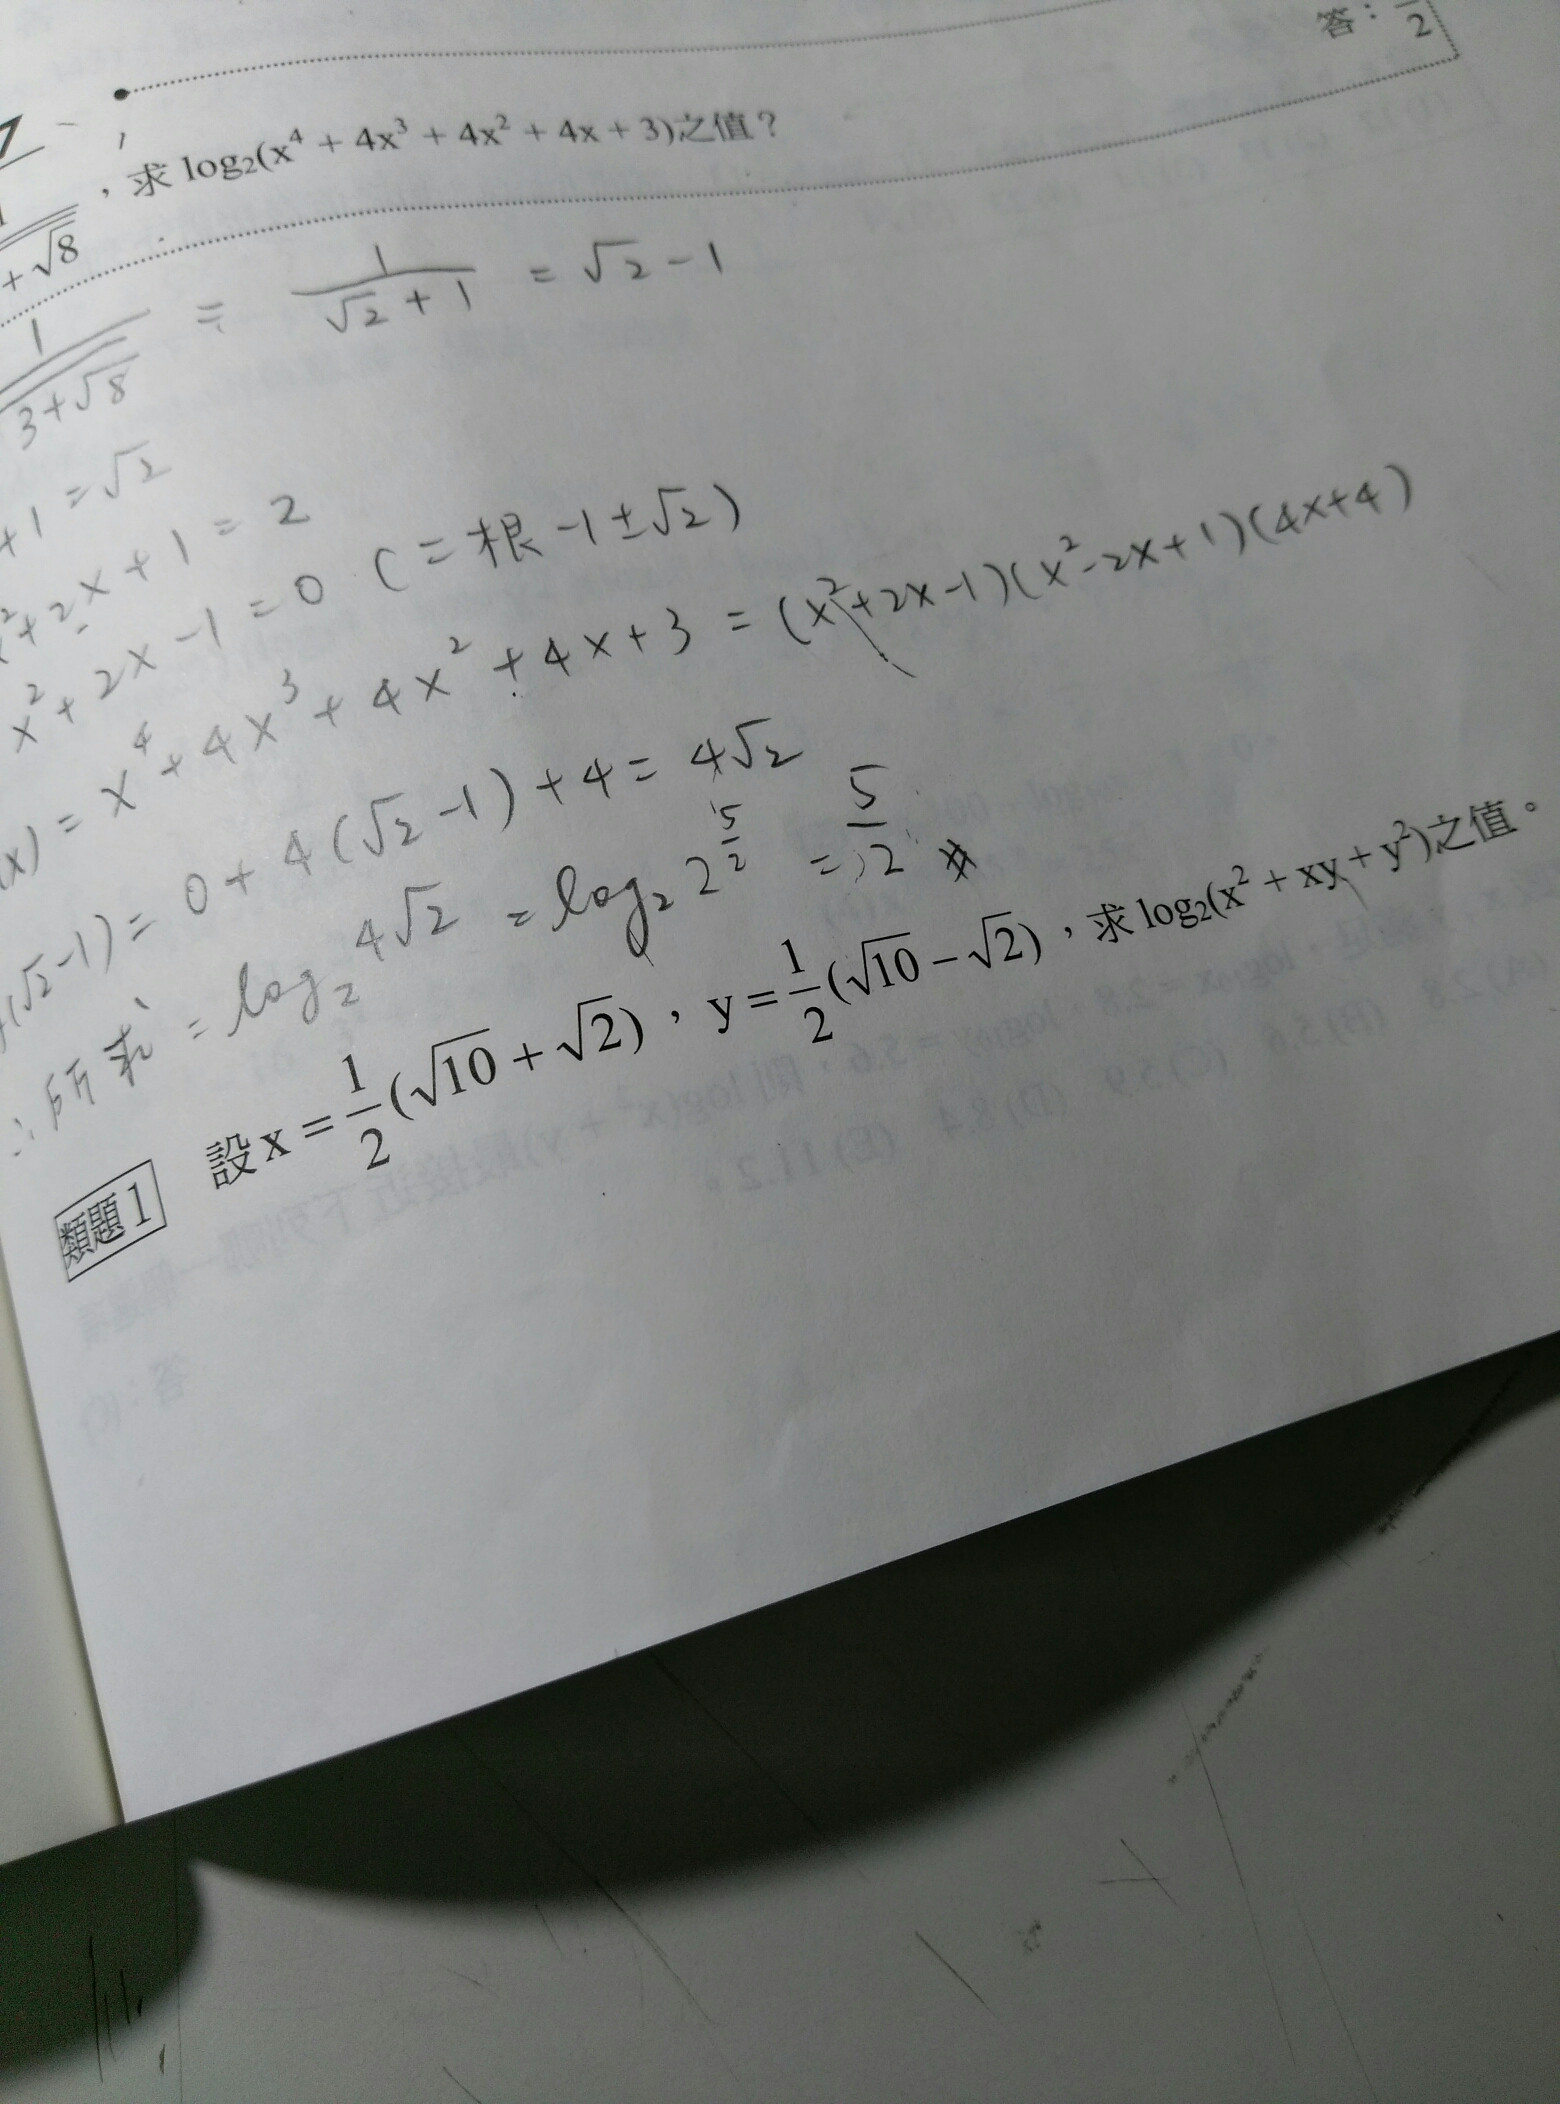 答：—2
1
—+√8 ，求 log₂(x⁴ + 4x³ + 4x² + 4x + 3)之值？
1/√(3+√8) = 1/(√2+1) = √2-1
+1 = √2
x²+2x+1 = 2
x²+2x-1=0 (二根 -1±√2)
(x) = x⁴+4x³+4x²+4x+3 = (x²+2x-1)(x²-2x+1)(4x+4)
(√2-1) = 0+4(√2-1)+4 = 4√2
∴所求 = log₂ 4√2 = log₂ 2^(5/2) = 5/2 #
類題1 設 x = 1/2(√10 + √2)，y = 1/2(√10 - √2)，求 log₂(x² + xy + y²)之值。